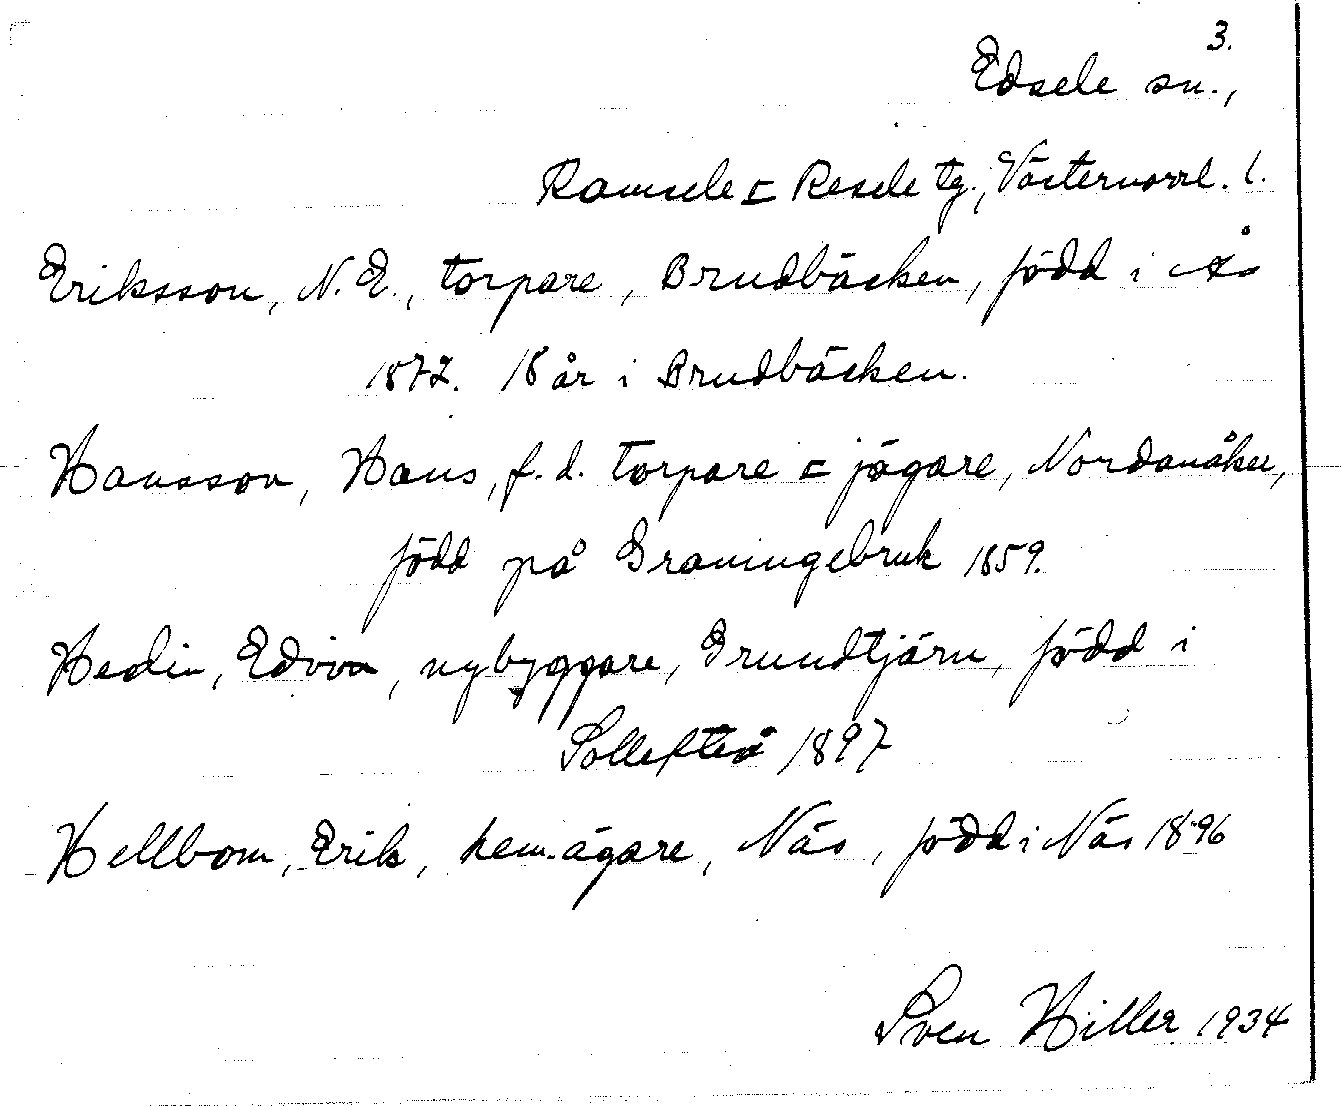 3.
Edsele sn.,
Ramsele o Resele tg., Västernorrl. l.
Eriksson, N.E., torpare, Brudbäcken, född i Ås
1872. 18 år i Brudbäcken.
Hansson, Hans, f.d. torpare o jägare, Nordanåker,
född på Graningebruk 1859.
Hedin, Edvin, nybyggare, Grundtjärn, född i
Sollefteå 1897
Hellbom, Erik, hem.ägare, Näs, född i Näs 1896
Sven Hiller 1934